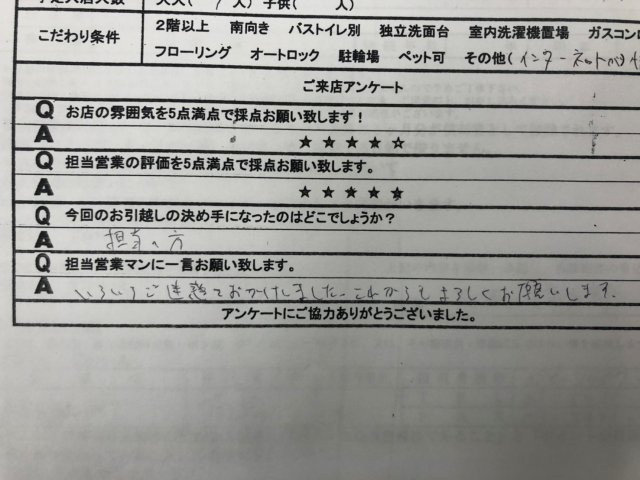 予定入居人数 大人( 1 人) 子供( 人)
こだわり条件 2階以上 南向き バストイレ別 独立洗面台 室内洗濯機置場 ガスコンロ
フローリング オートロック 駐輪場 ペット可 その他(インターネットが
ご来店アンケート
Q お店の雰囲気を5点満点で採点お願い致します!
A ☆ ☆ ☆ ☆ ☆
Q 担当営業の評価を5点満点で採点お願い致します。
A ☆ ☆ ☆ ☆ ☆
Q 今回のお引越しの決め手になったのはどこでしょうか?
A 担当の方
Q 担当営業マンに一言お願い致します。
A いろいろご迷惑をおかけしました。これからもよろしくお願いします。
アンケートにご協力ありがとうございました。